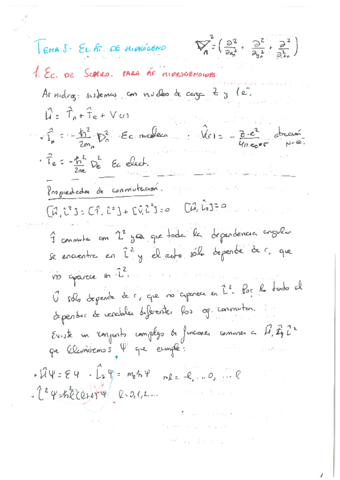 TEMA 3: EL ÁT. DE HIDRÓGENO ∇²ₙ = (∂²/∂xₙ² + ∂²/∂yₙ² + ∂²/∂zₙ²)
1. EC. DE SCHRO. PARA ÁT HIDROGENOIDES
Át hidrog: sistemas con núcleo de carga Z y 1e⁻.
Ĥ = T̂ₙ + T̂e + V(r)
· T̂ₙ = -ħ²/2mₙ ∇ₙ² Ec nuclear : V̂(r) = - Z·e²/4πε₀·r atracción N-e⁻
· T̂e = -ħ²/2me ∇e² Ec elect.
Propiedades de conmutación.
[Ĥ, L̂²] = [T̂, L̂²] + [V̂, L̂²] = 0 [Ĥ, L̂z] = 0
T̂ conmuta con L̂² ya que toda la dependencia angular
se encuentra en L̂² y el resto sólo depende de r, que
no aparece en L̂².
V̂ sólo depende de r, que no aparece en L̂². Por lo tanto al
depender de variables diferentes los op. conmutan.
Existe un conjunto completo de funciones comunes a Ĥ, L̂z y L̂²
que llamaremos Ψ que cumple:
· ĤΨ = EΨ · L̂zΨ = mₗħΨ ml = -l, ..0, ... l
· L̂²Ψ = ħ²l(l+1)Ψ l = 0,1,2....